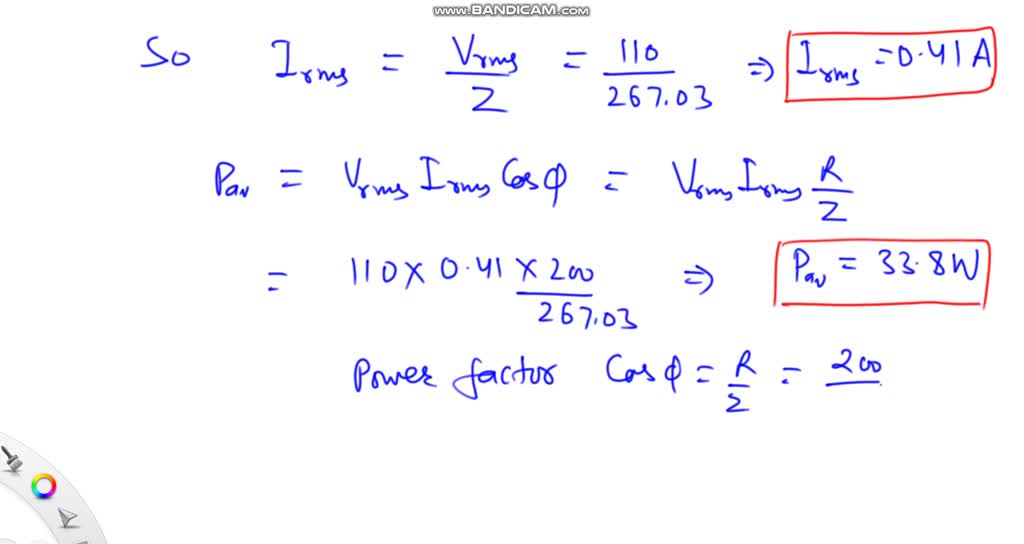 www.BANDICAM.com
So Irms = Vrms/Z = 110/267.03 ⇒ Irms = 0.41A
Pav = Vrms Irms Cos φ = Vrms Irms R/Z
= 110 × 0.41 × 200/267.03 ⇒ Pav = 33.8W
Power factor Cos φ = R/Z = 200